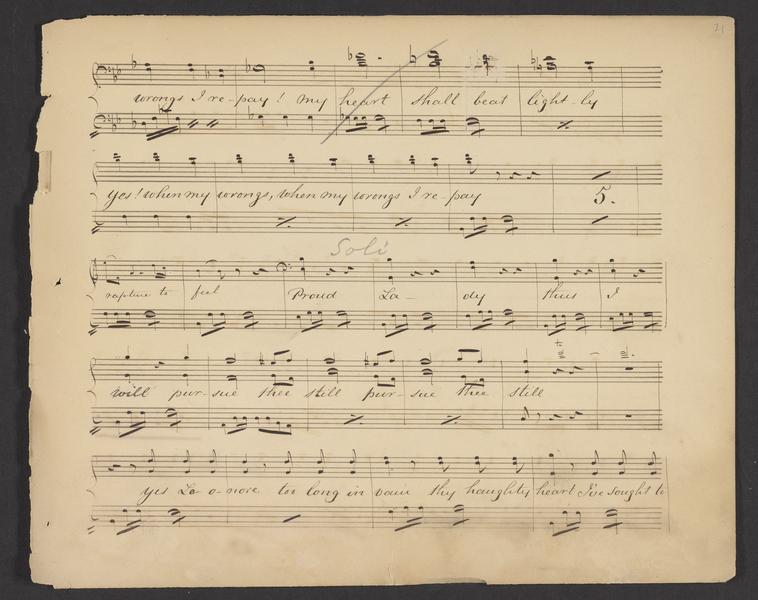 21
wrongs I re-pay! my heart shall beat light-ly
yes! when my wrongs, when my wrongs I re-pay
5.
Soli
rapture to feel Proud La-dy thus I
will pur-sue thee still pur-sue thee still
yes Le-o-nore too long in vain thy haughty heart I've sought to